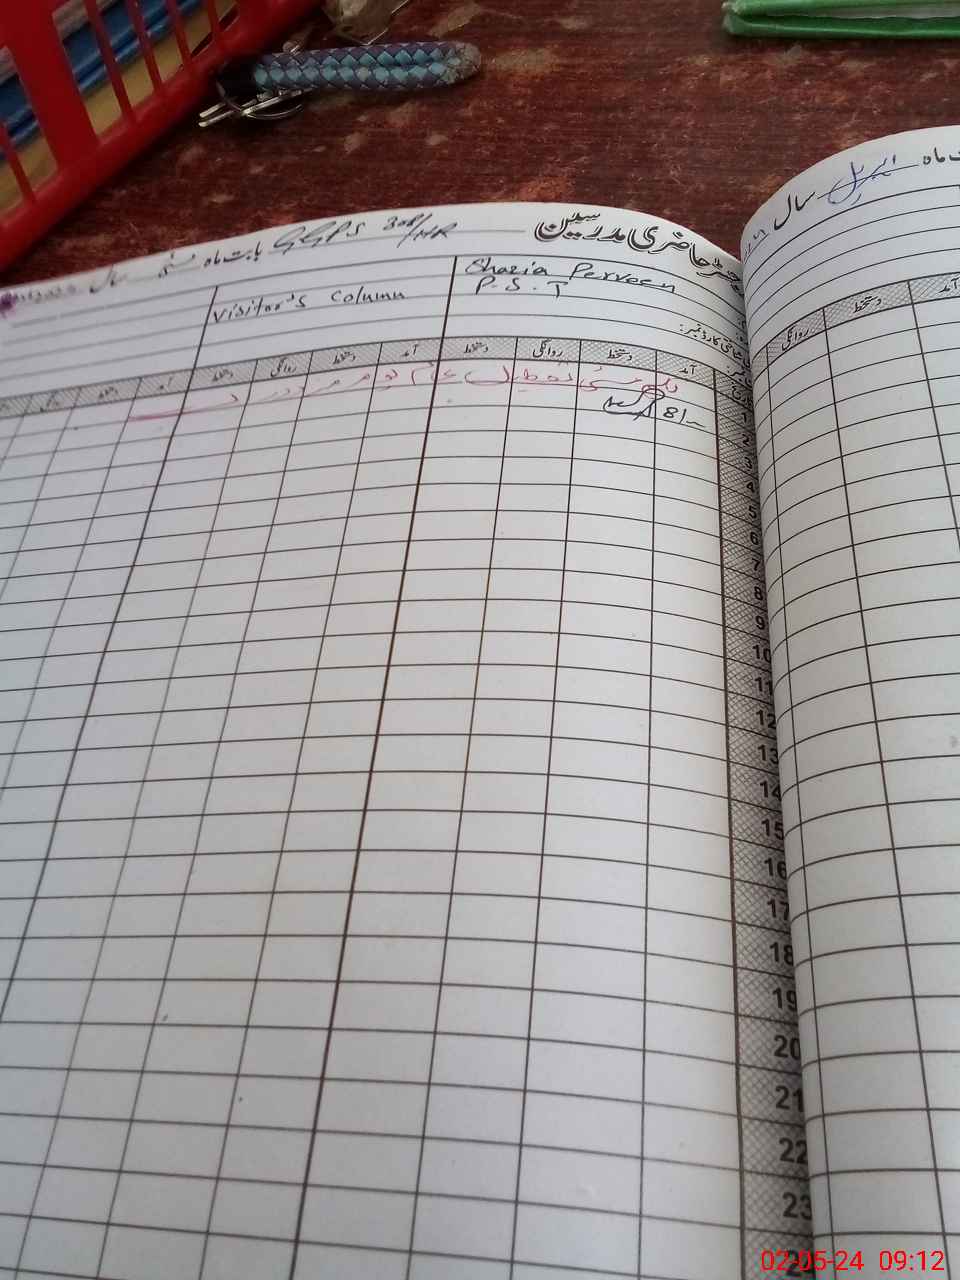 رجسٹر حاضری مدرسین
GGPS 308/HR بابت ماہ مئی سال
Shazia Perveen
P.S.T
Visitor's Column
آمد دستخط روانگی دستخط آمد دستخط روانگی دستخط آمد دستخط
یکم مئی تعطیل عام یوم مزدور
8/_
1
2
3
4
5
6
7
8
9
10
11
12
13
14
15
16
17
18
19
20
21
22
23
بابت ماہ اپریل سال
آمد دستخط روانگی
02-05-24 09:12